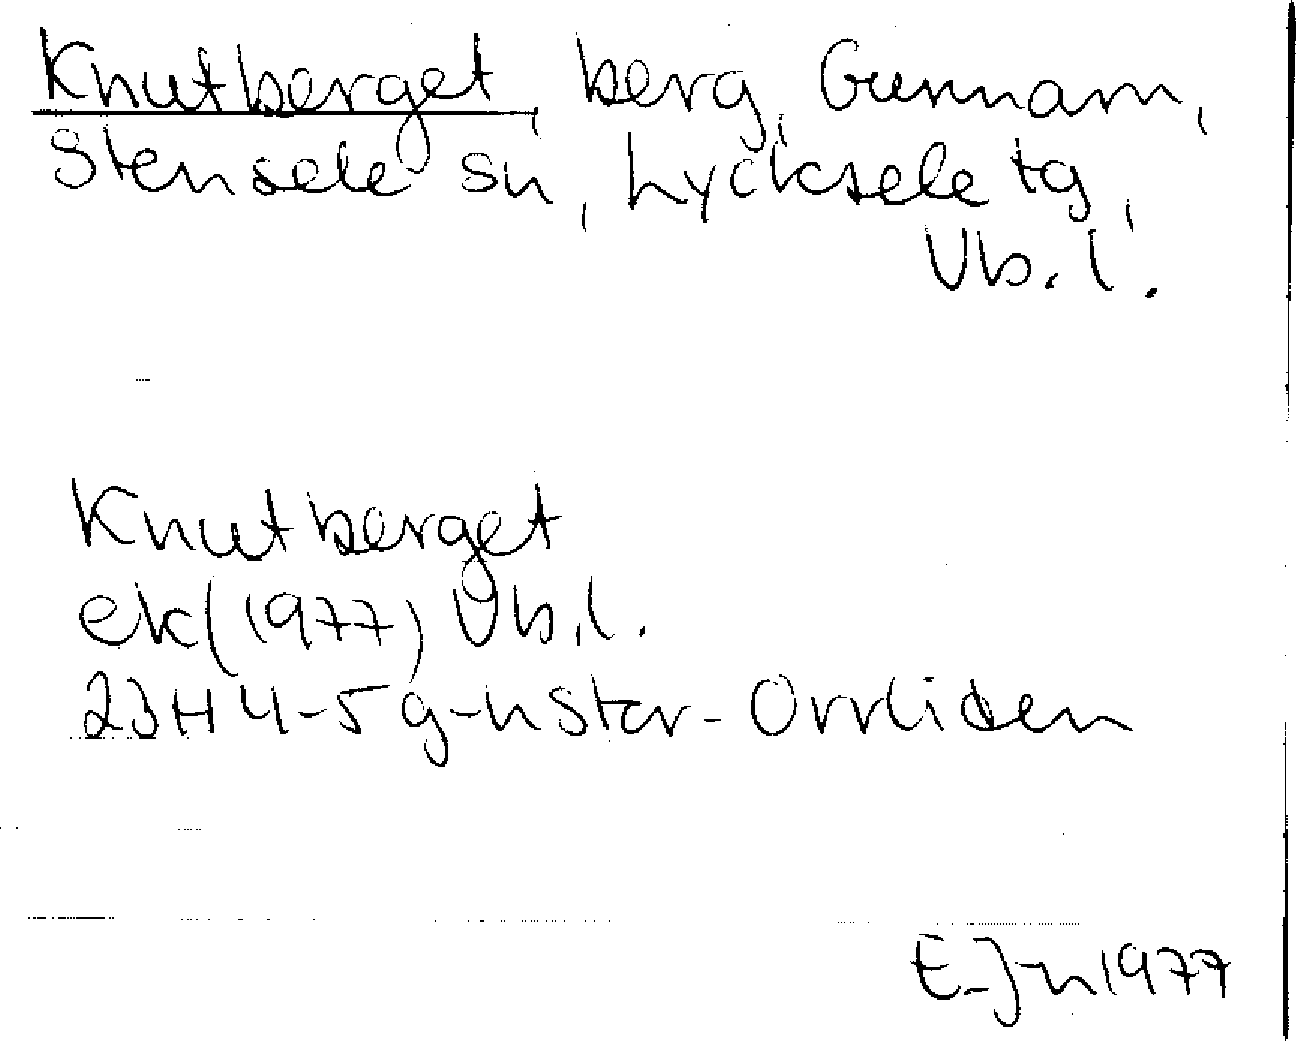 Knutberget, berg, Gunnarn,
Stensele sn, Lycksele tg,
Vb. l.
Knutberget
ek (1977) Vb. l.
23H 4-5 g-h Stor-Orrliden
E. J-n 1977